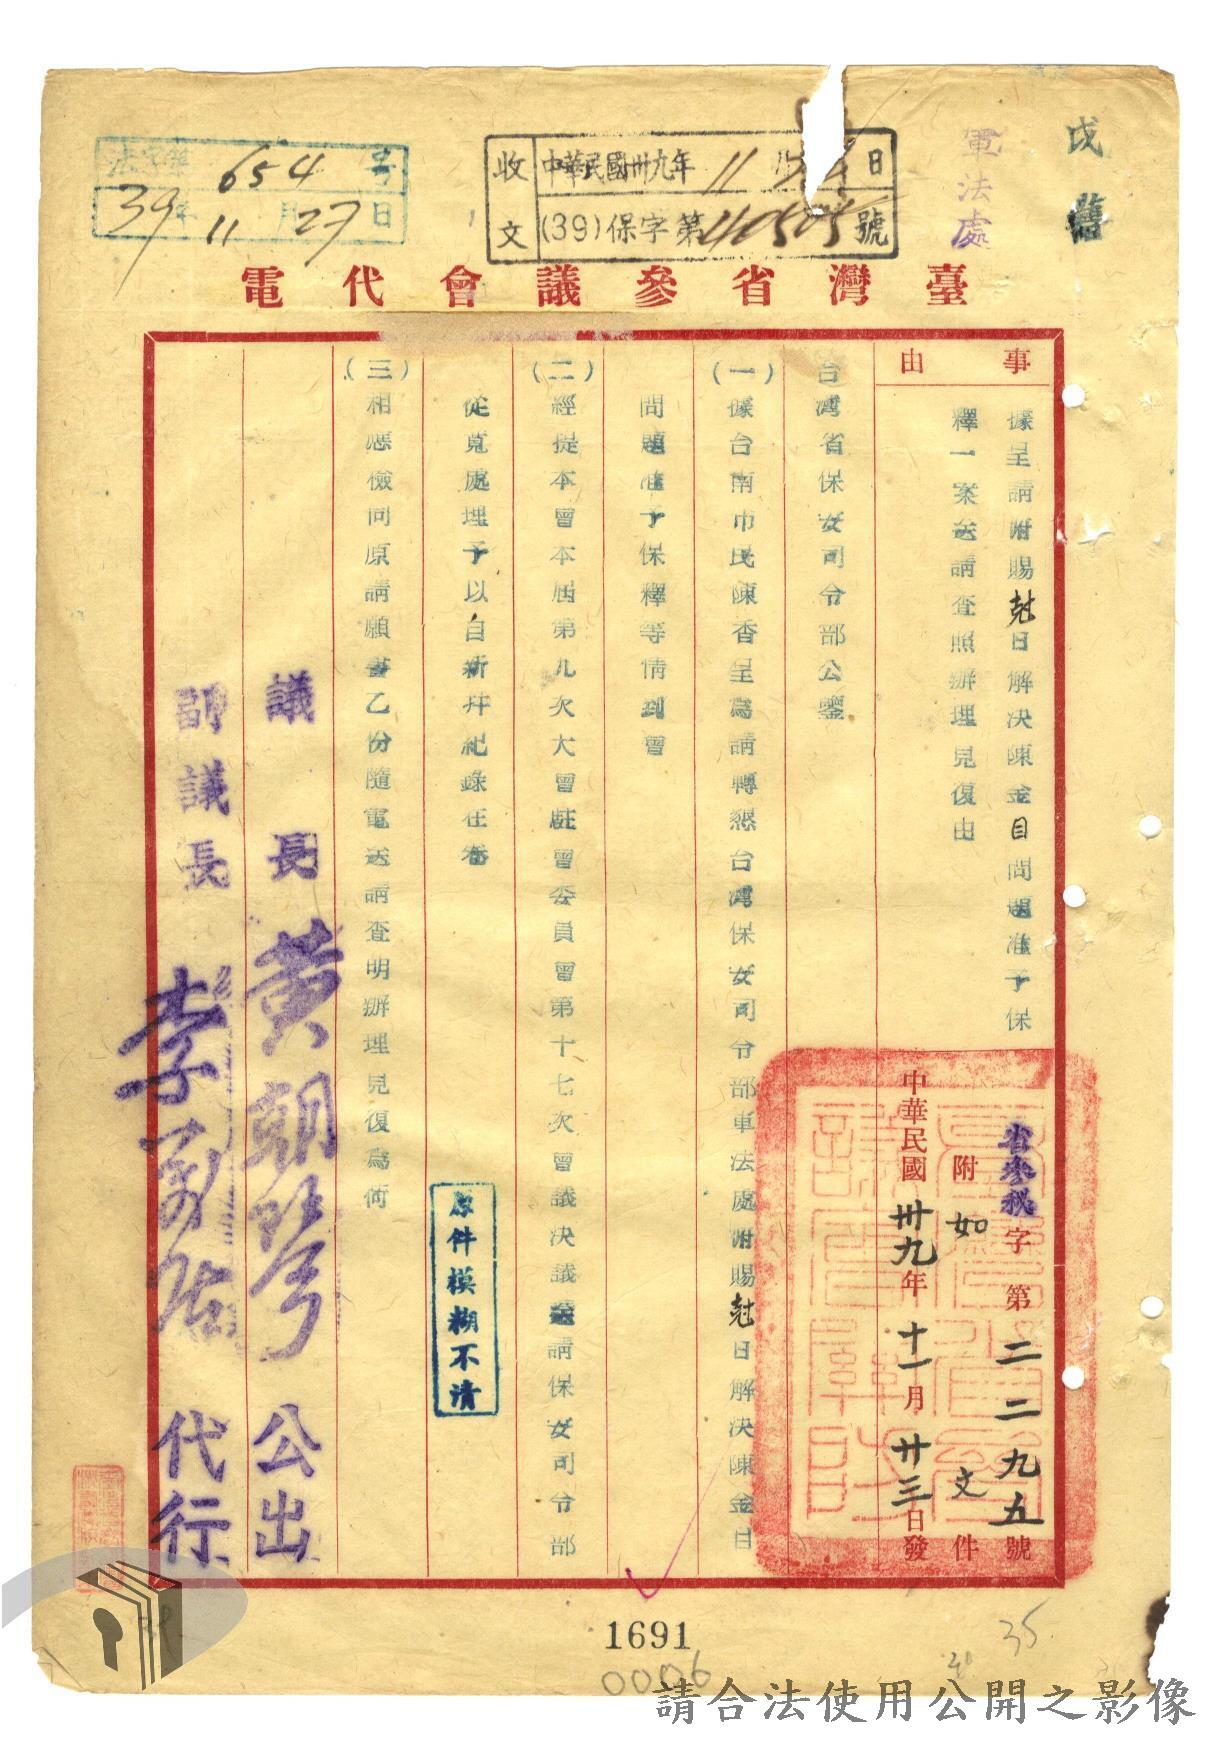 戊
軍法處
收文
中華民國卅九年11月 日
(39)保字第40505號
法字第654号
39年11月27日
臺灣省參議會代電
事由
據呈請附賜尅日解決陳金目問題准予保
釋一案送請查照辦理見復由
省參秘字第二二九五號
附如文件
中華民國卅九年十一月廿三日發
台灣省保安司令部公鑒
(一)據台南市民陳香呈爲請轉懇台灣保安司令部軍法處附賜尅日解決陳金目
問題准予保釋等情到會
(二)經提本會本屆第九次大會駐會委員會第十七次會議決議送請保安司令部
從寬處理予以自新幷紀錄在卷
(三)相應檢同原請願書乙份隨電送請查明辦理見復爲荷
原件模糊不清
議長黃朝琴公出
副議長李萬居代行
1691
0006
35
請合法使用公開之影像